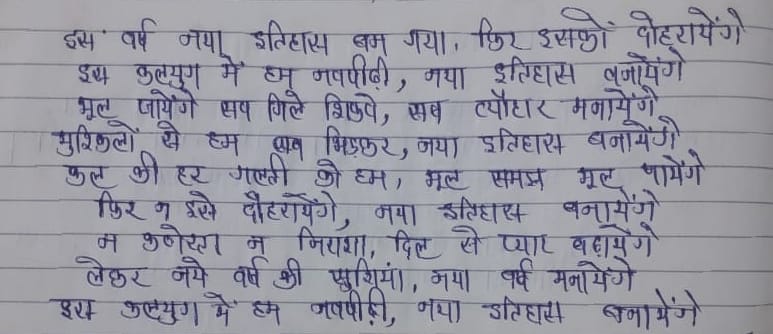 इस वर्ष नया इतिहास बन गया, फिर इसकों दोहरायेंगे
इस कलयुग में हम नवपीढ़ी, नया इतिहास बनायेंगे
भूल जायेंगे सब गिले शिकवे, सब त्यौहार मनायेंगे
मुश्किलों से हम सब भिड़कर, नया इतिहास बनायेंगे
कल की हर गलती को हम, भूल समझ भूल जायेंगे
फिर न इसे दौहरायेंगे, नया इतिहास बनायेंगे
न कठोरता न निराशा, दिल से प्यार बढ़ायेंगे
लेकर नये वर्ष की खुशियां, नया वर्ष मनायेंगे
इस कलयुग में हम नवपीढ़ी, नया इतिहास बनायेंगे